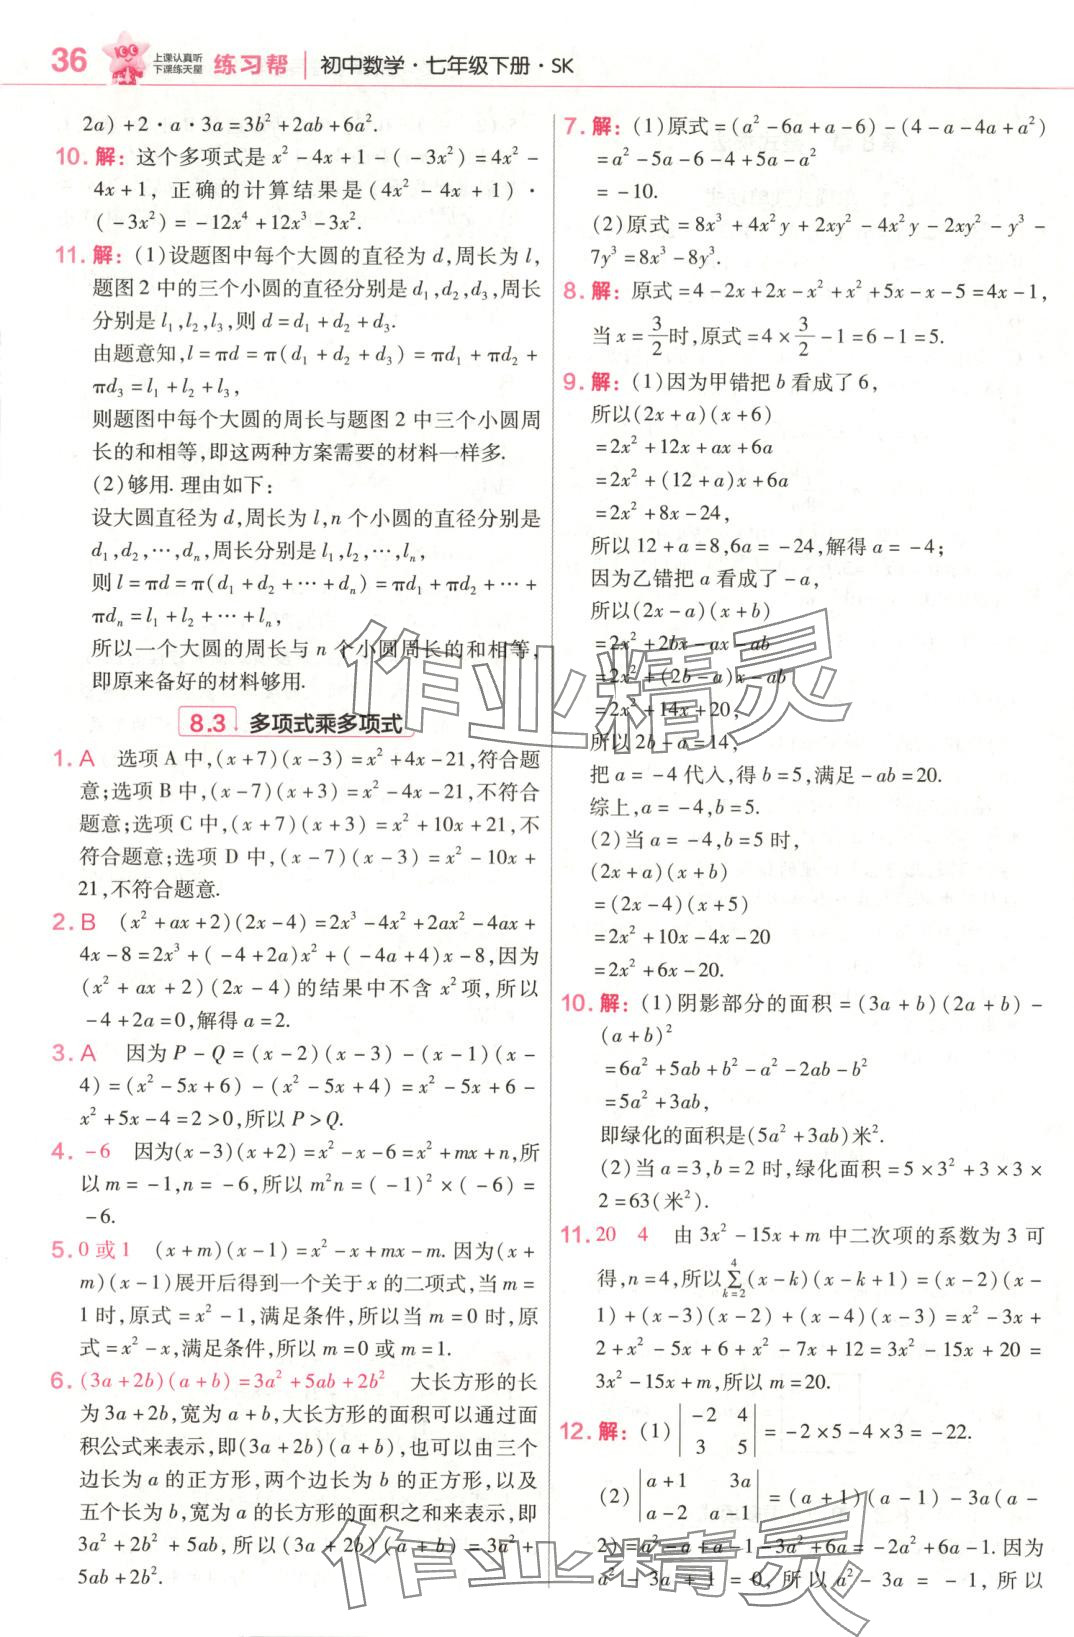 36 上课认真听 下课练天星 练习帮 初中数学·七年级下册·SK
2a)+2·a·3a=3b²+2ab+6a².
10. 解：这个多项式是 x²-4x+1-(-3x²)=4x²-
4x+1，正确的计算结果是(4x²-4x+1)·
(-3x²)=-12x⁴+12x³-3x².
11. 解：(1)设题图中每个大圆的直径为 d,周长为 l,
题图 2 中的三个小圆的直径分别是 d₁,d₂,d₃,周长
分别是 l₁,l₂,l₃,则 d=d₁+d₂+d₃.
由题意知,l=πd=π(d₁+d₂+d₃)=πd₁+πd₂+
πd₃=l₁+l₂+l₃,
则题图中每个大圆的周长与题图 2 中三个小圆周
长的和相等,即这两种方案需要的材料一样多.
(2)够用. 理由如下：
设大圆直径为 d,周长为 l,n 个小圆的直径分别是
d₁,d₂,…,dₙ,周长分别是 l₁,l₂,…,lₙ,
则 l=πd=π(d₁+d₂+…+dₙ)=πd₁+πd₂+…+
πdₙ=l₁+l₂+…+lₙ,
所以一个大圆的周长与 n 个小圆周长的和相等,
即原来备好的材料够用.
8.3 多项式乘多项式
1. A 选项 A 中,(x+7)(x-3)=x²+4x-21,符合题
意;选项 B 中,(x-7)(x+3)=x²-4x-21,不符合
题意;选项 C 中,(x+7)(x+3)=x²+10x+21,不
符合题意;选项 D 中,(x-7)(x-3)=x²-10x+
21,不符合题意.
2. B (x²+ax+2)(2x-4)=2x³-4x²+2ax²-4ax+
4x-8=2x³+(-4+2a)x²+(-4a+4)x-8,因为
(x²+ax+2)(2x-4)的结果中不含 x²项,所以
-4+2a=0,解得 a=2.
3. A 因为 P-Q=(x-2)(x-3)-(x-1)(x-
4)=(x²-5x+6)-(x²-5x+4)=x²-5x+6-
x²+5x-4=2>0,所以 P>Q.
4. -6 因为(x-3)(x+2)=x²-x-6=x²+mx+n,所
以 m=-1,n=-6,所以 m²n=(-1)²×(-6)=
-6.
5. 0 或 1 (x+m)(x-1)=x²-x+mx-m. 因为(x+
m)(x-1)展开后得到一个关于 x 的二项式,当 m=
1 时,原式=x²-1,满足条件,所以当 m=0 时,原
式=x²-x,满足条件,所以 m=0 或 m=1.
6. (3a+2b)(a+b)=3a²+5ab+2b² 大长方形的长
为 3a+2b,宽为 a+b,大长方形的面积可以通过面
积公式来表示,即(3a+2b)(a+b),也可以由三个
边长为 a 的正方形,两个边长为 b 的正方形,以及
五个长为 b,宽为 a 的长方形的面积之和来表示,即
3a²+2b²+5ab,所以(3a+2b)(a+b)=3a²+
5ab+2b².
7. 解：(1)原式=(a²-6a+a-6)-(4-a-4a+a²)
=a²-5a-6-4+5a-a²
=-10.
(2)原式=8x³+4x²y+2xy²-4x²y-2xy²-y³-
7y³=8x³-8y³.
8. 解：原式=4-2x+2x-x²+x²+5x-x-5=4x-1,
当 x=3/2时,原式=4×3/2-1=6-1=5.
9. 解：(1)因为甲错把 b 看成了 6,
所以(2x+a)(x+6)
=2x²+12x+ax+6a
=2x²+(12+a)x+6a
=2x²+8x-24,
所以 12+a=8,6a=-24,解得 a=-4;
因为乙错把 a 看成了-a,
所以(2x-a)(x+b)
=2x²+2bx-ax-ab
=2x²+(2b-a)x-ab
=2x²+14x+20,
所以 2b-a=14,
把 a=-4 代入,得 b=5,满足-ab=20.
综上,a=-4,b=5.
(2)当 a=-4,b=5 时,
(2x+a)(x+b)
=(2x-4)(x+5)
=2x²+10x-4x-20
=2x²+6x-20.
10. 解：(1)阴影部分的面积=(3a+b)(2a+b)-
(a+b)²
=6a²+5ab+b²-a²-2ab-b²
=5a²+3ab,
即绿化的面积是(5a²+3ab)米².
(2)当 a=3,b=2 时,绿化面积=5×3²+3×3×
2=63(米²).
11. 20 4 由 3x²-15x+m 中二次项的系数为 3 可
得,n=4,所以∑(k=2→4)(x-k)(x-k+1)=(x-2)(x-
1)+(x-3)(x-2)+(x-4)(x-3)=x²-3x+
2+x²-5x+6+x²-7x+12=3x²-15x+20=
3x²-15x+m,所以 m=20.
12. 解：(1)|-2 4; 3 5|=-2×5-4×3=-22.
(2)|a+1 3a; a-2 a-1|=(a+1)(a-1)-3a(a-
2)=a²-a+a-1-3a²+6a=-2a²+6a-1. 因为
a²-3a+1=0,所以 a²-3a=-1,所以
作业精灵
作业精灵